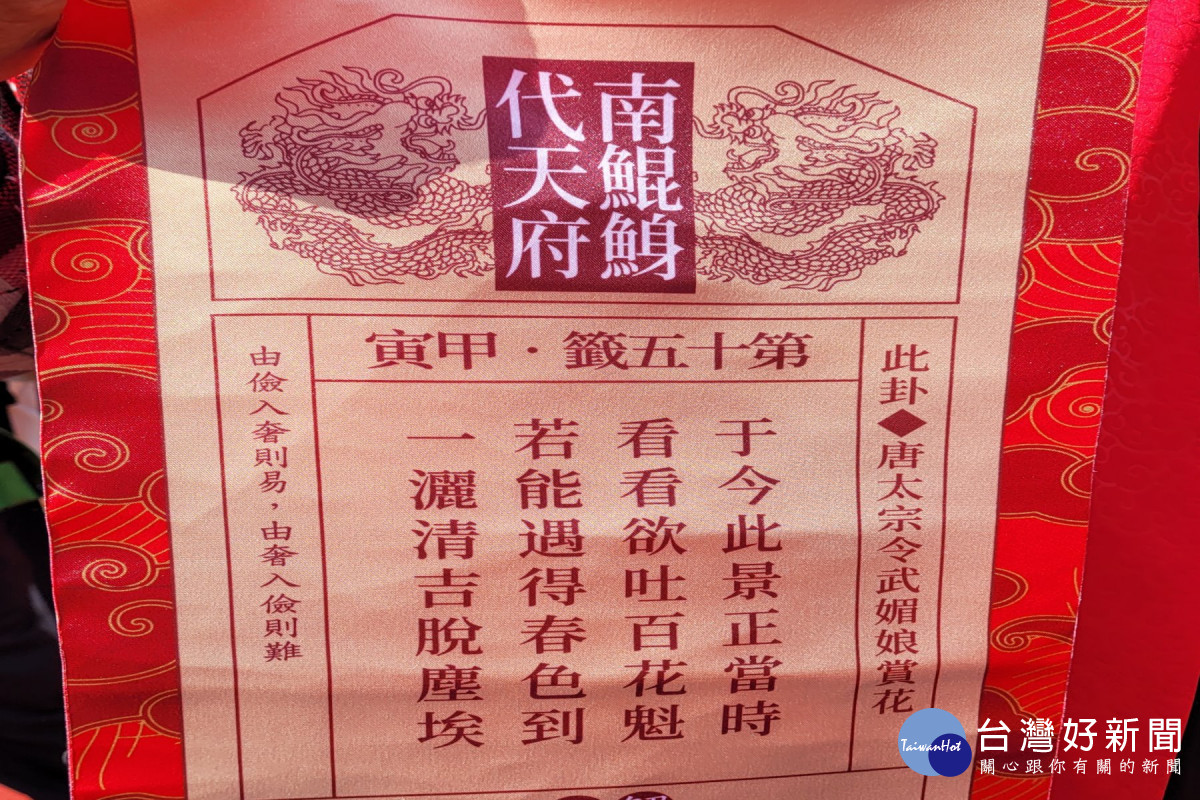 南鯤鯓
代天府
第十五籤・甲寅
此卦◆唐太宗令武媚娘賞花
于今此景正當時
看看欲吐百花魁
若能遇得春色到
一灑清吉脫塵埃
由儉入奢則易，由奢入儉則難
TaiwanHot
台灣好新聞
關心跟你有關的新聞